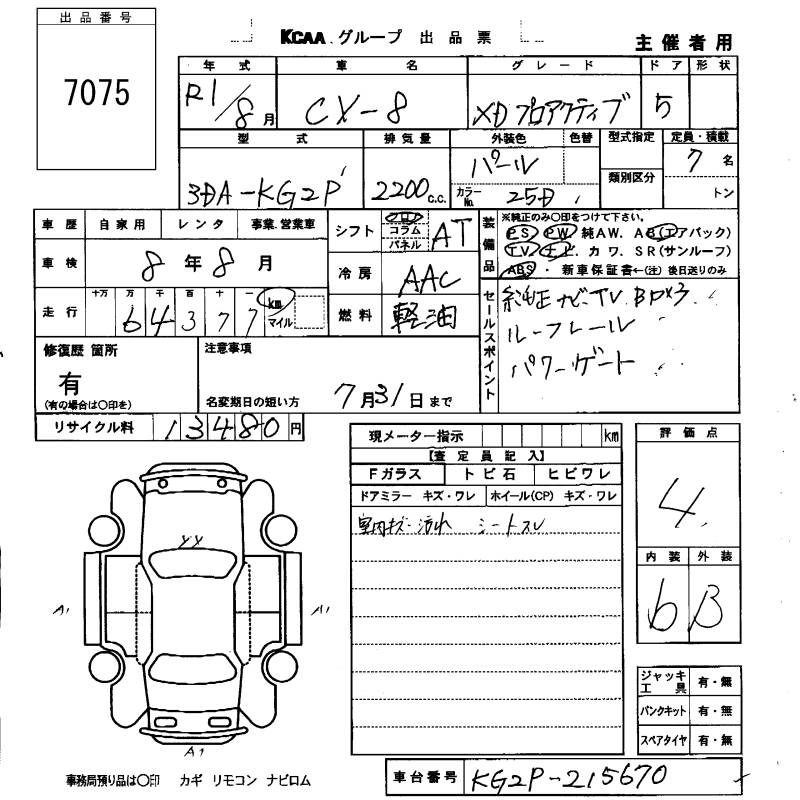 出品番号
7075
KCAA グループ 出品票
主催者用
年式 車名 グレード ドア 形状
R1/8月 CX-8 XD プロアクティブ 5
型式 排気量 外装色 色替 型式指定 定員・積載
3DA-KG2P 2200 c.c. パール 7名
カラーNo. 25D 類別区分 トン
車歴 自家用 レンタ 事業.営業車
シフト フロア コラム パネル AT
装備品 ※純正のみ〇印をつけて下さい。
PS PW 純AW. AB(エアバック)
TV ナビ. カワ. SR(サンルーフ)
ABS ・ 新車保証書←(注) 後日送りのみ
車検 8年8月
冷房 AAC
走行 十万 万 千 百 十 一 km マイル
64377
燃料 軽油
セールスポイント 純正ナビ.TV. BM×3.
ルーフレール
パワーゲート
修復歴 箇所
有
(有の場合は〇印を)
注意事項
名変期日の短い方 7月31日まで
リサイクル料 13480円
現メーター指示 km
【査定員記入】
Fガラス トビ石 ヒビワレ
ドアミラー キズ・ワレ ホイール(CP) キズ・ワレ
室内キズ・汚れ シートスレ
評価点
4
内装 外装
6 B
YY
A1 A1
A1
ジャッキ工具 有・無
パンクキット 有・無
スペアタイヤ 有・無
事務局預り品は〇印 カギ リモコン ナビロム
車台番号 KG2P-215670